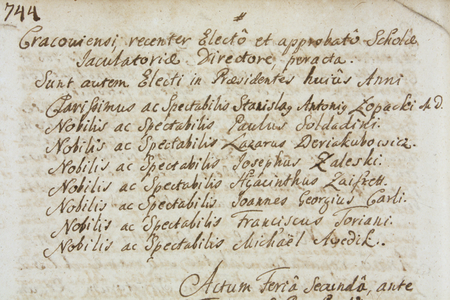 744
#
Cracoviensi, recenter Electô et approbatô Scholæ
Iaculatoriæ Directore, peracta.
Sunt autem Electi in Præsidentes huius Anni
Clarissimus ac Spectabilis Stanislaȝ Antoniȝ Łopacki M.D.
Nobilis ac Spectabilis Paulus Soldadini.
Nobilis ac Spectabilis Lazarus Deriakubowicz.
Nobilis ac Spectabilis Josephus Zaleski.
Nobilis ac Spectabilis Hyacinthus
Nobilis ac Spectabilis Joannes Georgius Carli.
Nobilis ac Spectabilis Franciscus Toriani.
Nobilis ac Spectabilis Michaël Awedik.
Actum Feriâ Secundâ, ante